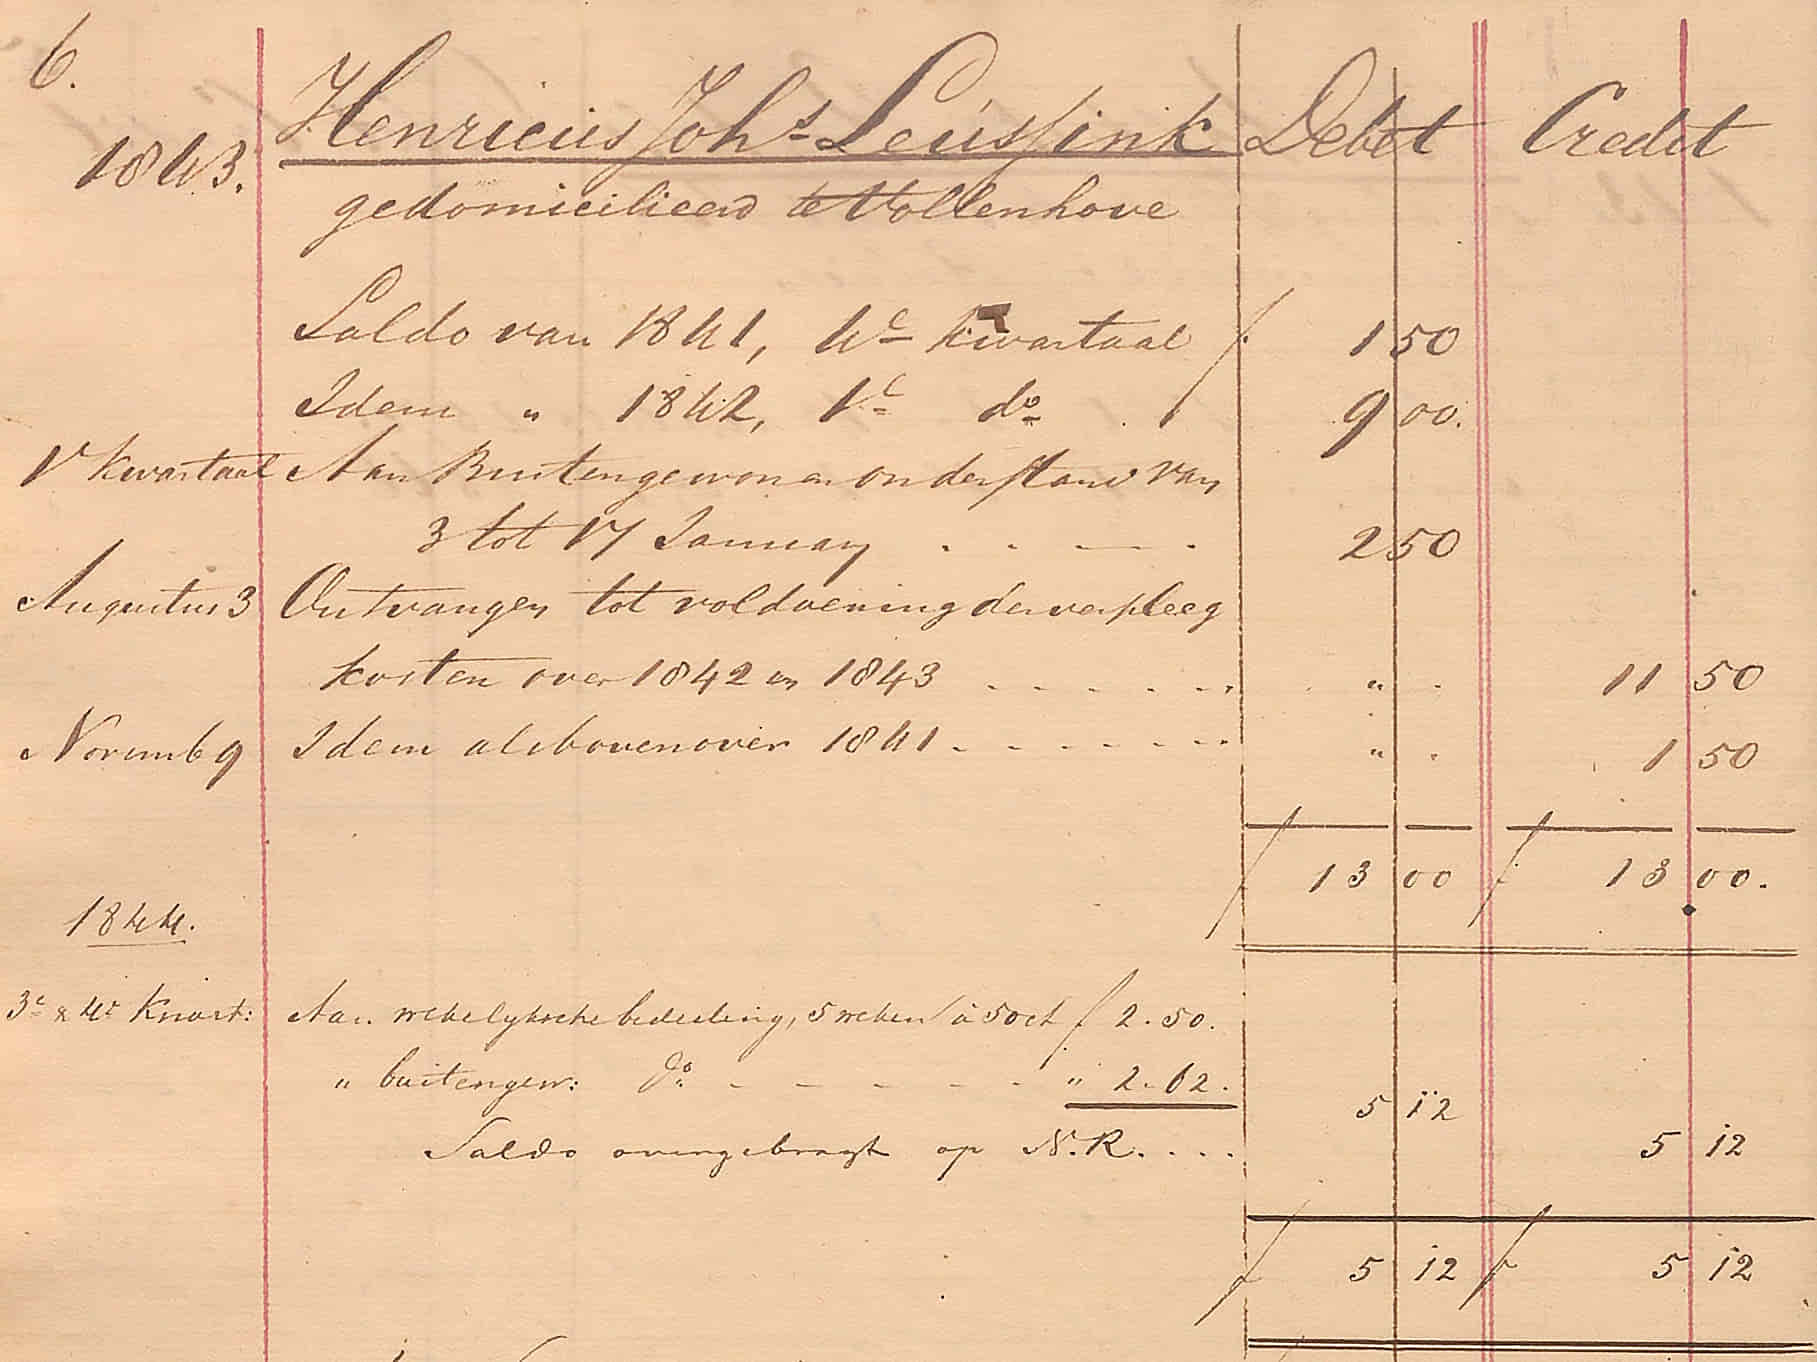 6.
1843. Henricus Johs Leussink Debet Credit
gedomicilieerd te Vollenhove
Saldo van 1841, 4e kwartaal f 1 50
Idem " 1842, 1e do 9 00.
1e kwartaal Aan Buitengewonen onderstand van
3 tot 17 January . . - . 2 50
Augustus 3 Ontvangen tot voldoening der verpleeg
kosten over 1842 en 1843 . . . . . . " . 11 50
Novemb 9 Idem alsboven over 1841 . . . . . . " . 1 50
f 13 00 f 13 00.
1844.
3e & 4e Kwart: Aan wekelyksche bedeeling, 5 weken à 50 ct f 2.50.
" buitengew: do - - - - - " 2.62. 5 12
Saldo overgebragt op N.R. . . . 5 12
f 5 12 f 5 12